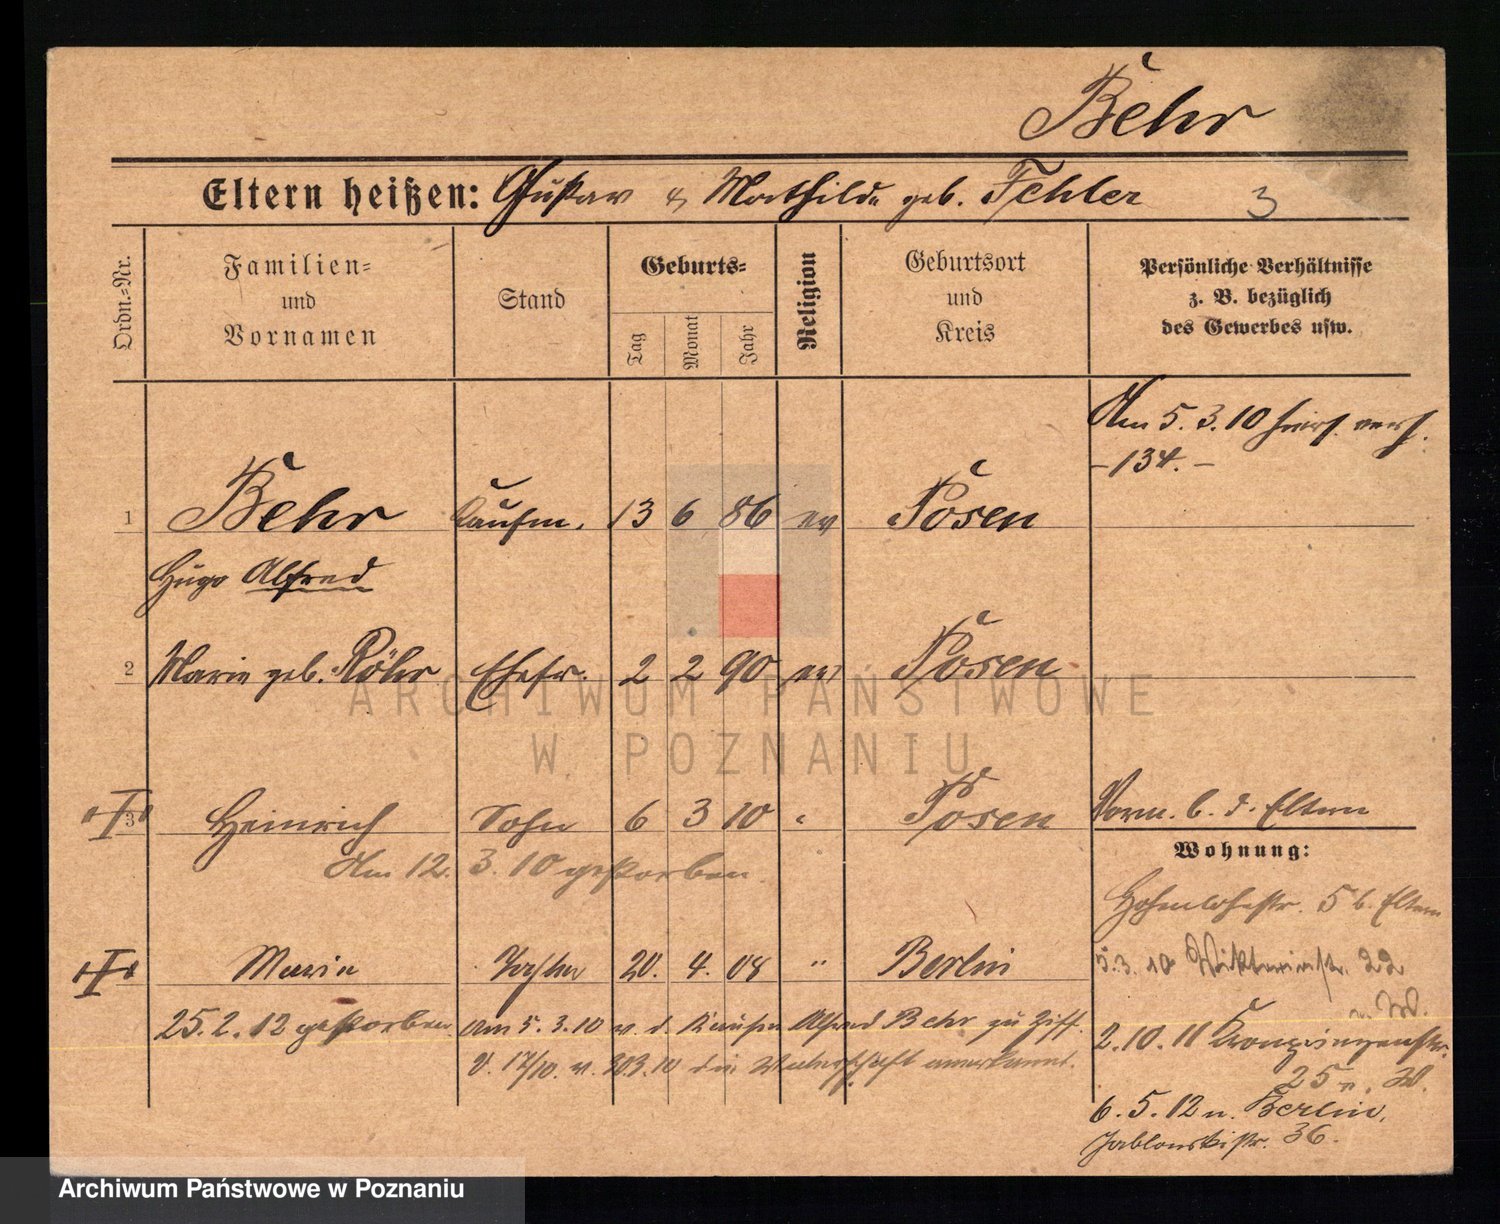 Behr
Eltern heißen: Gustav & Mathilde geb. Fehler 3
Ordn.-Nr.
Familien- und Vornamen
Stand
Geburts-
Tag Monat Jahr
Religion
Geburtsort und Kreis
Persönliche Verhältnisse z. B. bezüglich des Gewerbes usw.
Am 5.3.10 hier verh.
-134.-
1 Behr Kaufm. 13 6 86 ev Posen
Hugo Alfred
2 Marie geb. Röhr Ehefr. 2 2 90 ev Posen
3 Heinrich Sohn 6 3 10 " Posen
Vorm. b. d. Eltern
Am 12.3.10 gestorben
Wohnung:
Hohenlohestr. 5 b. Eltern
Marie Tochter 20. 4. 08 " Berlin
5.3.10 Viktoriastr. 22
25.2.12 gestorben. Am 5.3.10 v. d. Kaufm Alfred Behr zu Ziff.
V. 17/10. v. 30.3.10 die Vaterschaft anerkannt.
2.10.11 Kronprinzenstr.
25 n. W.
6.5.12 n. Berlin,
Jablonskistr. 36.
ARCHIWUM PAŃSTWOWE
W POZNANIU
Archiwum Państwowe w Poznaniu